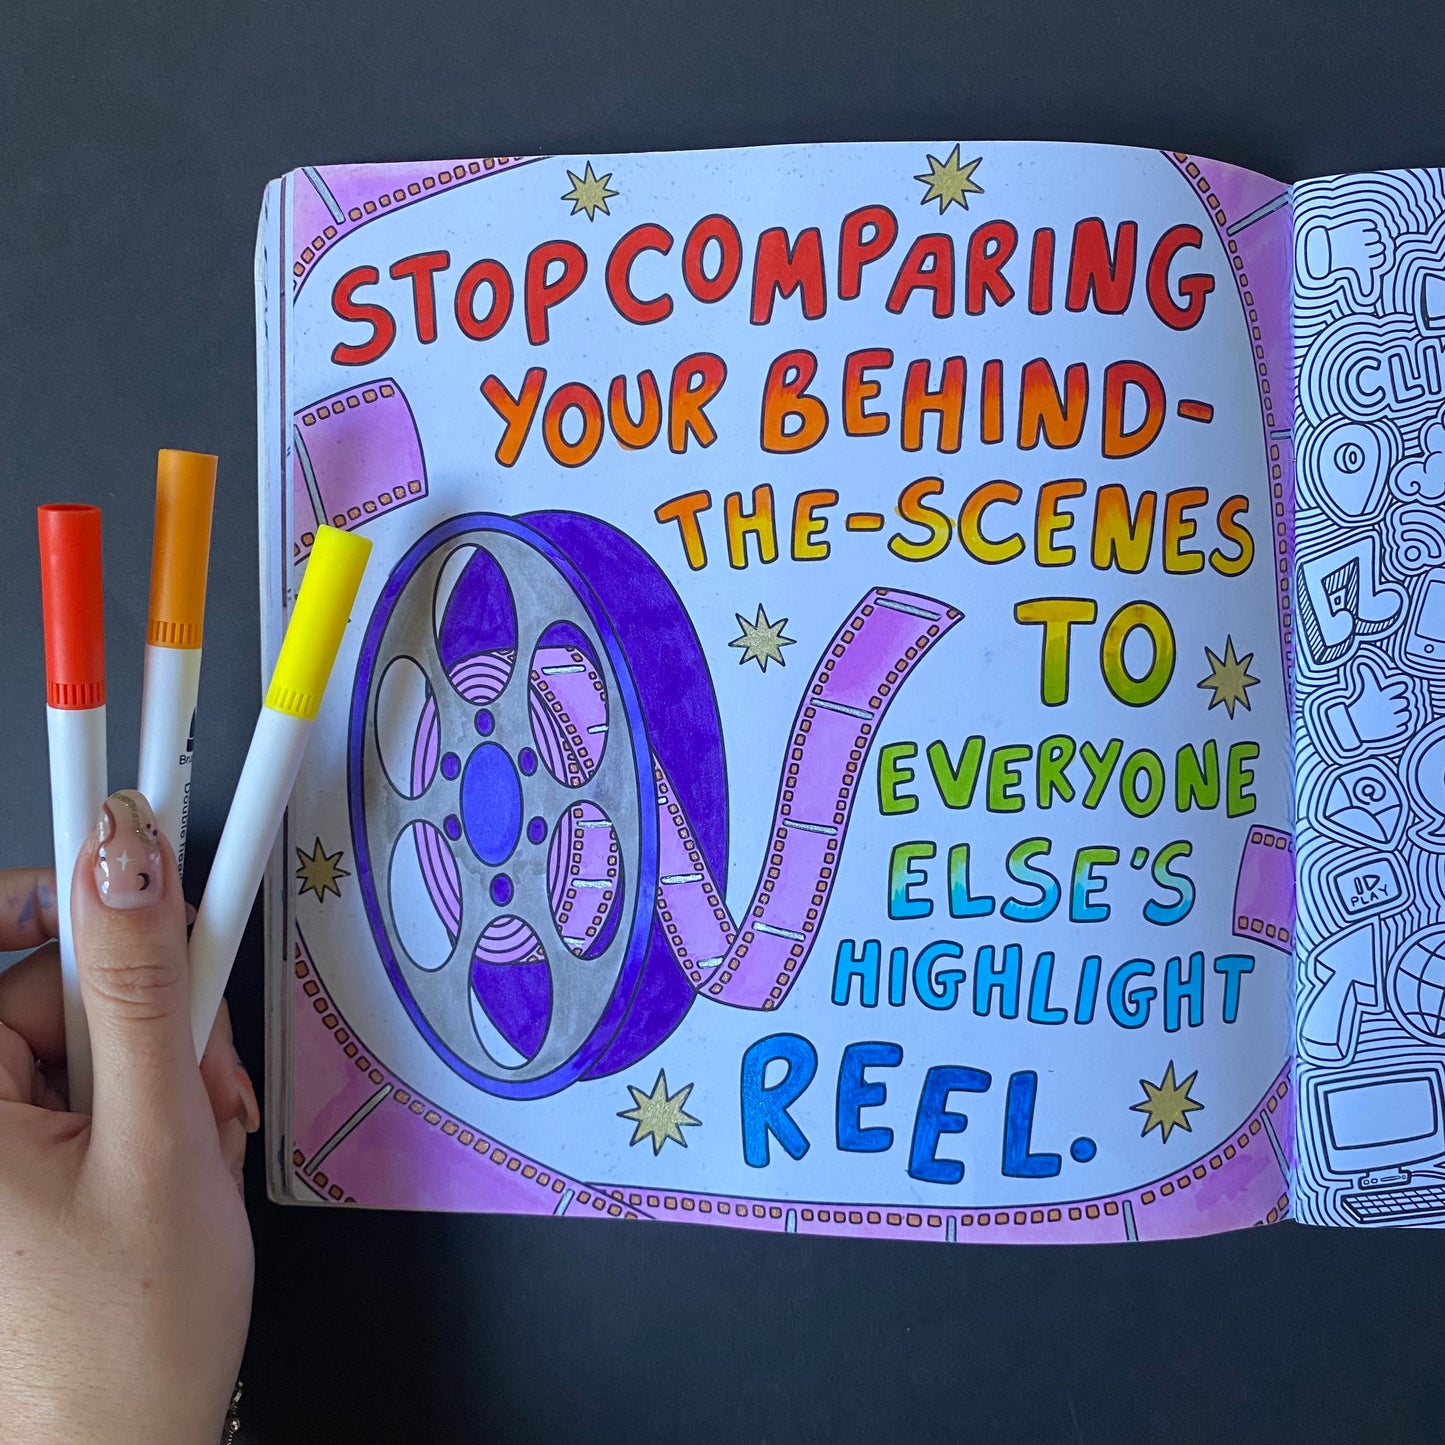 STOP COMPARING
YOUR BEHIND-
THE-SCENES
TO
EVERYONE
ELSE'S
HIGHLIGHT
REEL.
@
PLAY